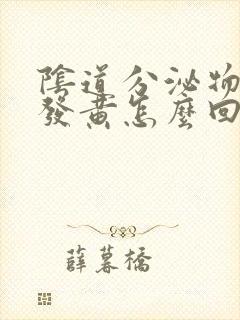 陰道分泌物
發黃怎麼回
薛慕橋